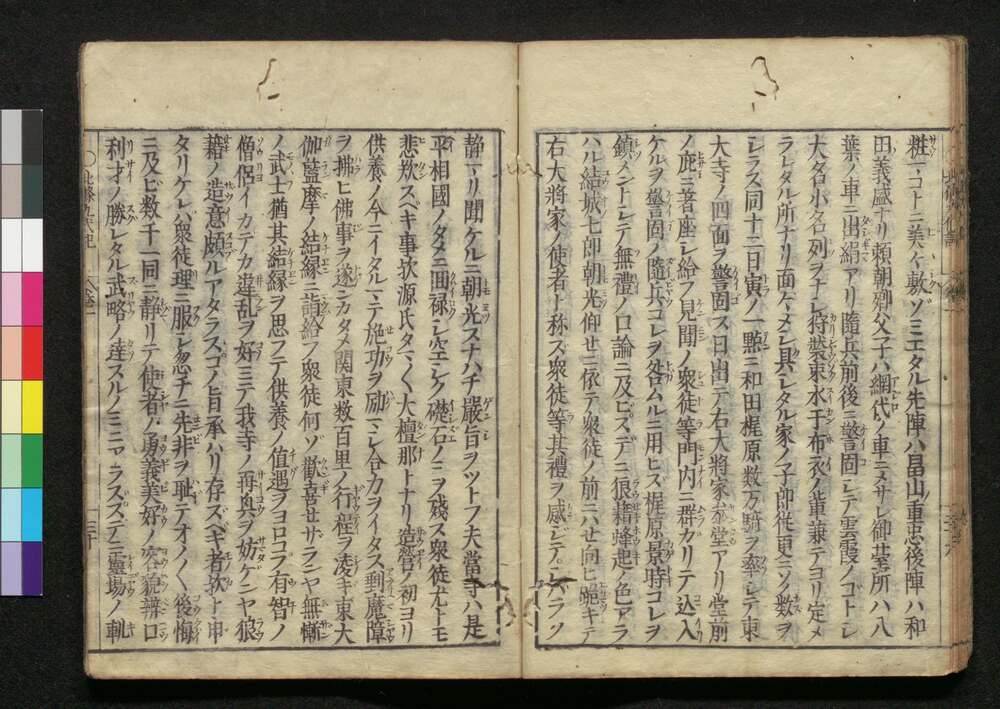 粧ヒコトニ美々敷ゾミエタル先陣ハ畠山ノ重忠後陣ハ和
田ノ義盛ナリ頼朝卿父子ハ網代ノ車ニメサレ御臺所ハ八
葉ノ車ニ出絹アリ隨兵前後ニ警固シテ雲霞ノゴトシ
大名小名列ヲナシ狩裝束水干布衣ノ輩兼テヨリ定メ
ラレタル所ナリ面々ニメシ具シタル家ノ子郎從更ニソノ数ヲ
シラス同十二日寅ノ一點ニ和田梶原数万騎ヲ率シテ東
大寺ノ四面ヲ警固ス日出テ右大將家参堂アリ堂前
ノ庇ニ著座シ給フ見聞ノ衆徒等門内ニ群カリテ込入
ケルヲ警固ノ隨兵コレヲ咎ムルニ用ヒズ梶原景時コレヲ
鎮メントシテ無禮ノ口論ニ及ビスデニ狼藉蜂起ノ色アラ
ハル結城七郎朝光仰セニ依テ衆徒ノ前ニハセ向ヒ跪キテ
右大將家ノ使者ト称ズ衆徒等其禮ヲ感シテ
静マリ聞ケルニ朝光スナハチ嚴旨ヲツトフ夫當寺ハ是
平相國ノタメニ回禄シ空シク礎石ノミヲ残ス衆徒尤トモ
悲歎スベキ事歟源氏タマタマ大檀那トナリ造營ノ初ヨリ
供養ノ今ニイタルマテ施功ヲ励マシ合力ヲイタス剰魔障
ヲ拂ヒ佛事ヲ遂ンカタメ関東数百里ノ行程ヲ凌ギ東大
伽藍摩ノ結縁ニ詣給フ衆徒何ゾ歡喜セサランヤ無慚
ノ武士猶其結縁ヲ思フテ供養ノ値遇ヲヨロコフ有智ノ
僧侶イカデカ違乱ヲ好ミテ我寺ノ再興ヲ妨ケンヤ狼
藉ノ造意頗ルアタラスコノ旨承ハリ存ズベキ者歟ト申
タリケレハ衆徒理ニ服シ忽チニ先非ヲ耻テオノ〱後悔
ニ及ビ数千一同ニ静リテ使者ノ勇義美好ノ容貌辨口
利才ノ勝レタル武略ノ達スルノミニアラズステニ靈場ノ軌